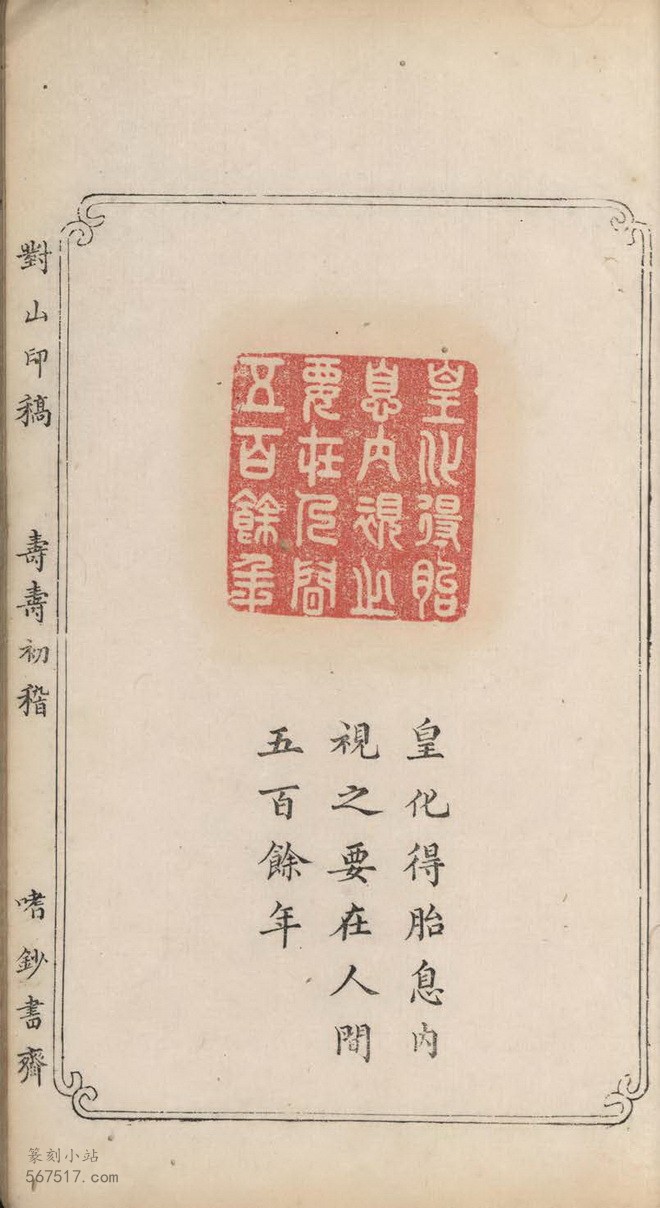 皇化得胎
息内視之
要在人間
五百餘年
皇化得胎息内
視之要在人間
五百餘年
對山印稿
壽壽初稽
嗜鈔書齋
篆刻小站
567517.com